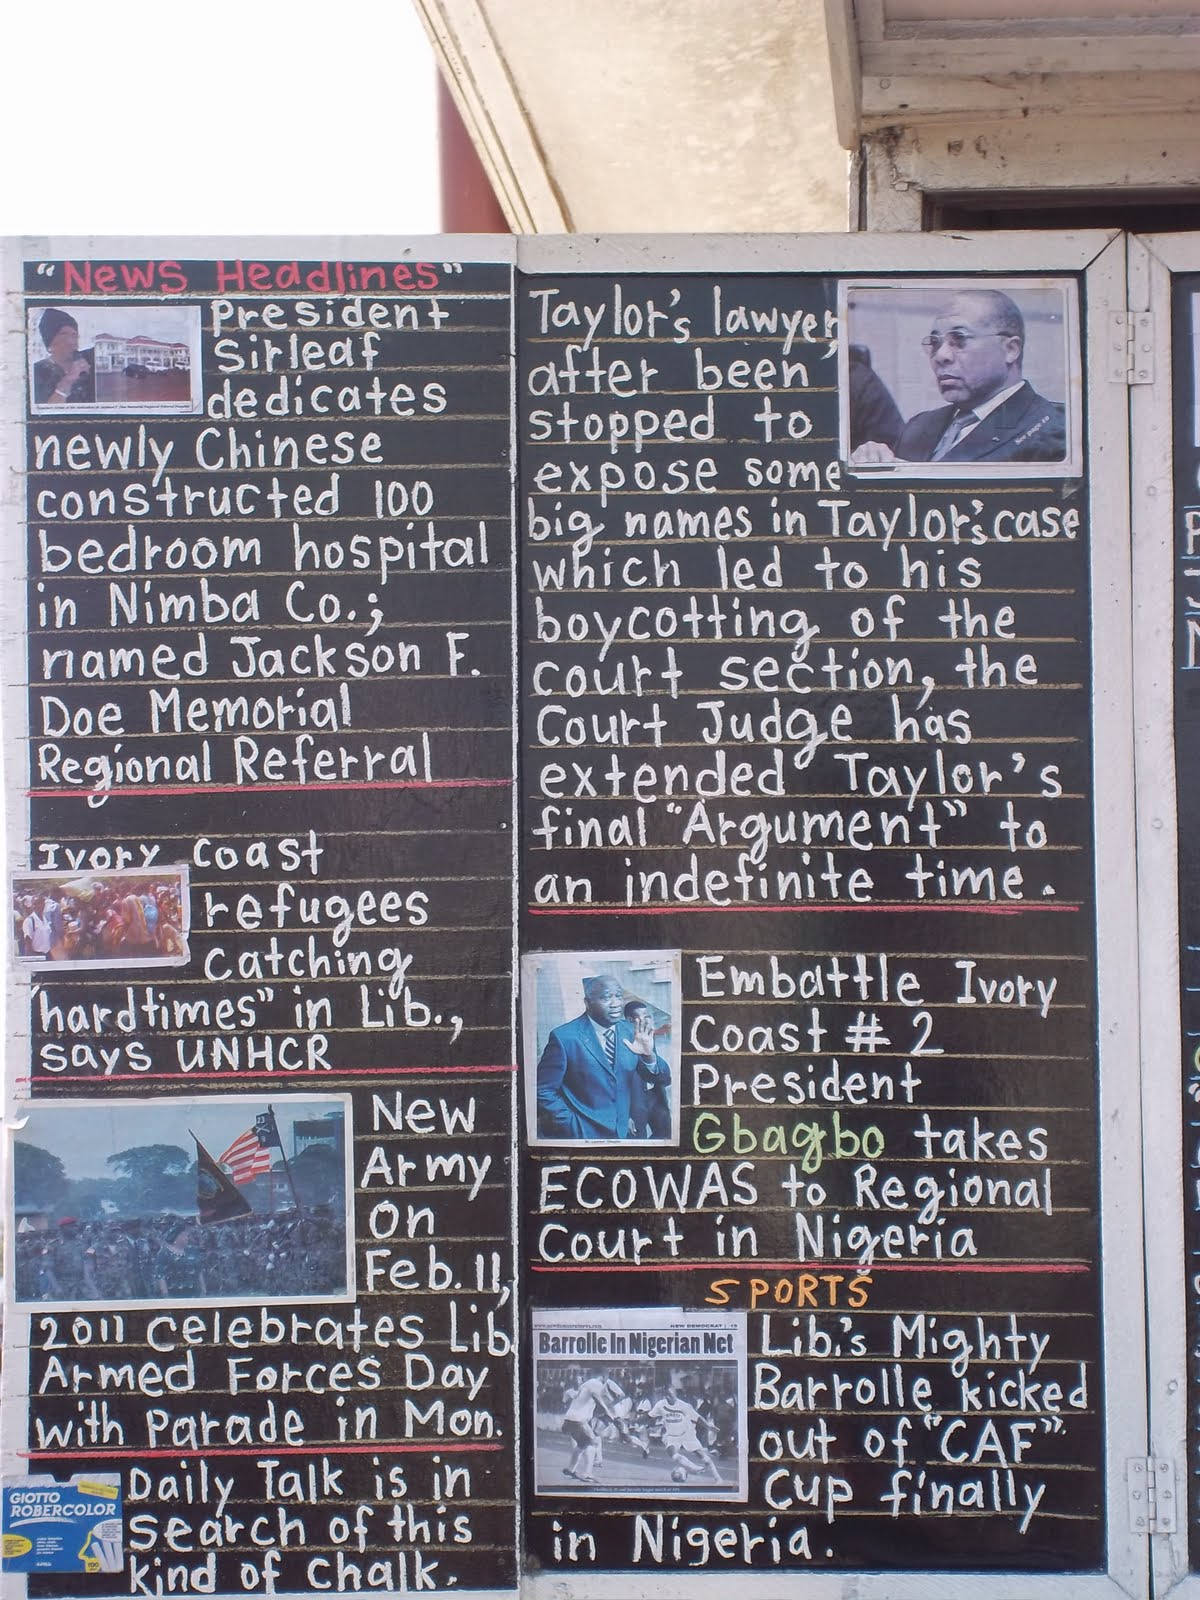 "News Headlines"
President
Sirleaf
dedicates
newly Chinese
constructed 100
bedroom hospital
in Nimba Co.;
named Jackson F.
Doe Memorial
Regional Referral
Ivory Coast
refugees
catching
"hardtimes" in Lib.,
says UNHCR
New
Army
on
Feb. 11,
2011 celebrates Lib.
Armed Forces Day
with Parade in Mon.
GIOTTO
ROBERCOLOR
Daily Talk is in
search of this
kind of chalk.
Taylor's lawyer,
after been
stopped to
expose some
big names in Taylor's case
which led to his
boycotting of the
court section, the
Court Judge has
extended Taylor's
final "Argument" to
an indefinite time.
See page 10
Embattle Ivory
Coast # 2
President
Gbagbo takes
ECOWAS to Regional
Court in Nigeria
SPORTS
NEW DEMOCRAT
Barrolle In Nigerian Net
Lib.'s Mighty
Barrolle kicked
out of "CAF"
Cup finally
in Nigeria.